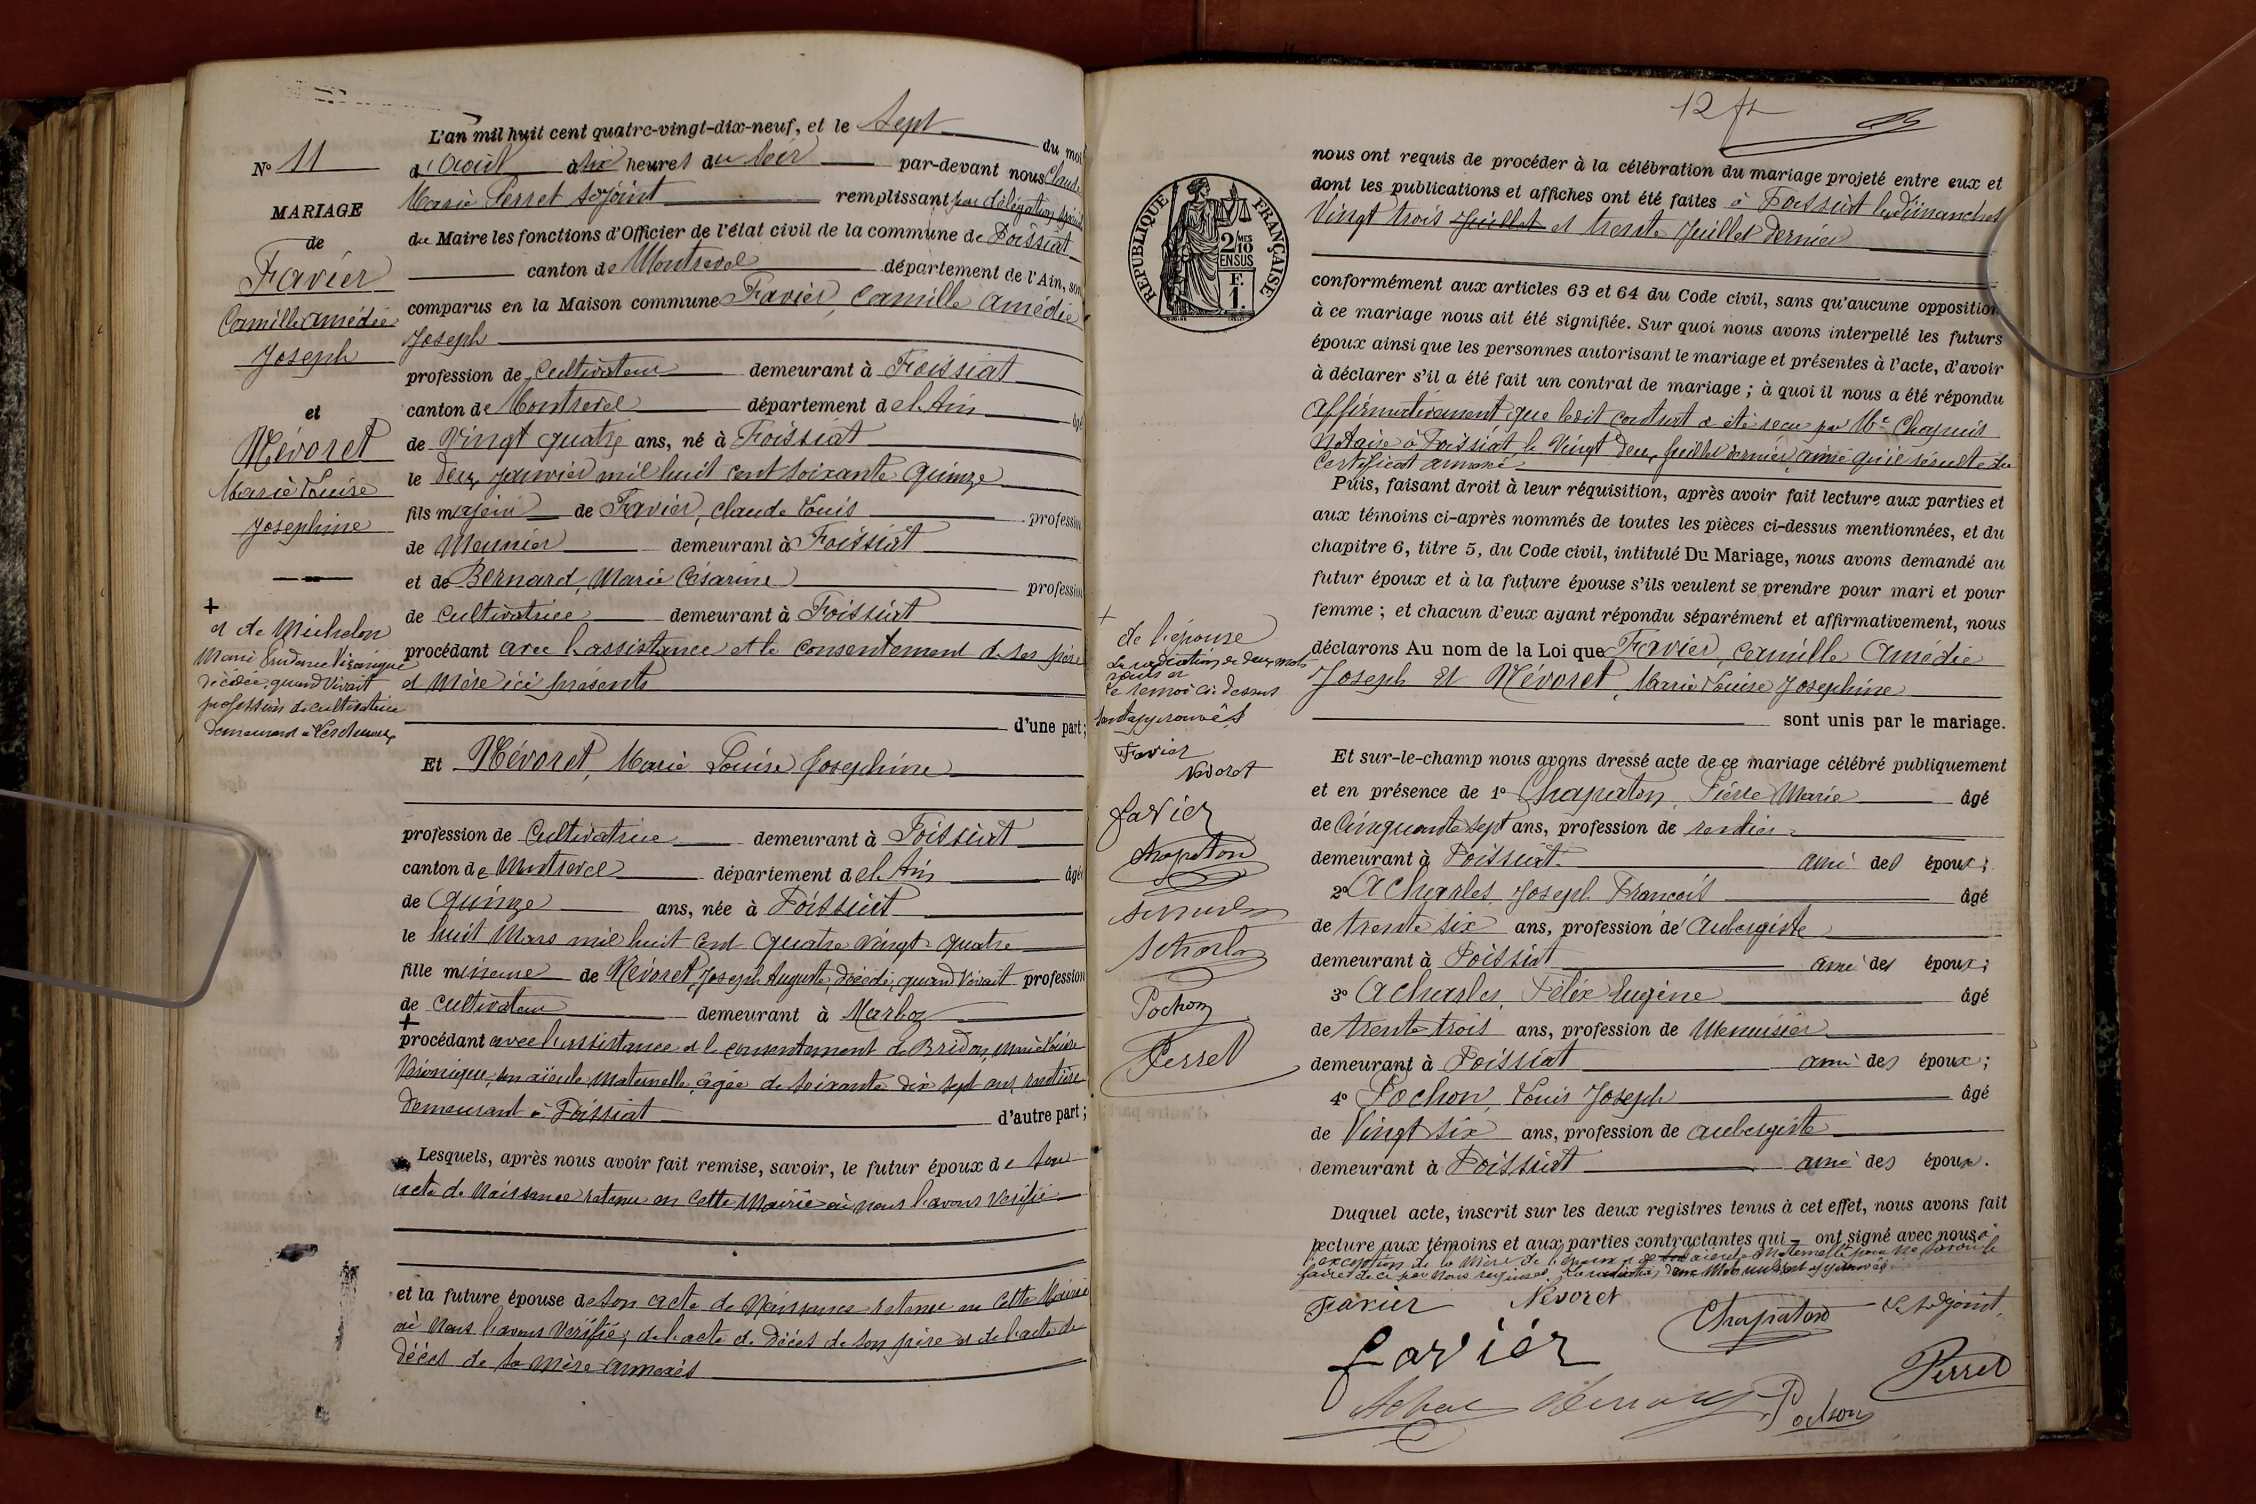 N° 11
MARIAGE
de
Favier
Camille Amédée
Joseph
et
Névoret
Marie Louise
Josephine
+
et de Michelon
Marie Prudence Véronique
décédée, quand vivait
profession de cultivatrice
demeurant à
L'an mil huit cent quatre-vingt-dix-neuf, et le Sept du moi
d'Août à six heures du soir par-devant nous Claude
Marie Perret Adjoint remplissant par délégation spéciale
du Maire les fonctions d'Officier de l'état civil de la commune de Foissiat
canton de Montrevel département de l'Ain, son
comparus en la Maison commune Favier, Camille Amédée
Joseph
profession de Cultivateur demeurant à Foissiat
canton de Montrevel département de l'Ain âgé
de Vingt quatre ans, né à Foissiat
le deux Janvier mil huit cent soixante quinze
fils majeur de Favier, Claude Louis profession
de Meunier demeurant à Foissiat
et de Bernard, Marie Césarine profession
de Cultivatrice demeurant à Foissiat
procédant avec l'assistance et le consentement de ses père
et mère ici présents
d'une part;
Et Névoret, Marie Louise Josephine
profession de Cultivatrice demeurant à Foissiat
canton de Montrevel département de l'Ain âgée
de Quinze ans, née à Foissiat
le huit Mars mil huit cent quatre vingt quatre
fille mineure de Névoret, Joseph Auguste, décédé, quand vivait profession
de Cultivateur demeurant à Marboz
+
procédant avec l'assistance et le consentement de Bridon, Marie Louise
Véronique, son aïeule maternelle, âgée de soixante dix sept ans, rentière
demeurant à Foissiat d'autre part;
Lesquels, après nous avoir fait remise, savoir, le futur époux de son
acte de naissance retenu en cette Mairie où nous l'avons vérifié
et la future épouse de son acte de Naissance retenu en cette Mairie
où nous l'avons vérifié; de l'acte de décès de son père et de l'acte de
décès de sa mère annexés
12 ft
RÉPUBLIQUE FRANÇAISE
2/10 MES
EN SUS
F.
1.
nous ont requis de procéder à la célébration du mariage projeté entre eux et
dont les publications et affiches ont été faites à Foissiat les dimanches
Vingt trois Juillet et trente Juillet dernier
conformément aux articles 63 et 64 du Code civil, sans qu'aucune opposition
à ce mariage nous ait été signifiée. Sur quoi nous avons interpellé les futurs
époux ainsi que les personnes autorisant le mariage et présentes à l'acte, d'avoir
à déclarer s'il a été fait un contrat de mariage; à quoi il nous a été répondu
affirmativement que ledit contrat a été reçu par Me Chapuis
notaire à Foissiat, le Vingt deux Juillet dernier, ainsi qu'il résulte du
certificat annexé
Puis, faisant droit à leur réquisition, après avoir fait lecture aux parties et
aux témoins ci-après nommés de toutes les pièces ci-dessus mentionnées, et du
chapitre 6, titre 5, du Code civil, intitulé Du Mariage, nous avons demandé au
futur époux et à la future épouse s'ils veulent se prendre pour mari et pour
femme; et chacun d'eux ayant répondu séparément et affirmativement, nous
déclarons Au nom de la Loi que Favier, Camille Amédée
Joseph Et Névoret, Marie Louise Josephine
sont unis par le mariage.
Et sur-le-champ nous avons dressé acte de ce mariage célébré publiquement
et en présence de 1° Chapaton, Pierre Marie âgé
de Cinquante sept ans, profession de rentier
demeurant à Foissiat ami des époux;
2° Acharles, Joseph François âgé
de trente six ans, profession de Aubergiste
demeurant à Foissiat ami des époux;
3° Acharles, Félix Eugène âgé
de trente trois ans, profession de Menuisier
demeurant à Foissiat ami des époux;
4° Pochon, Louis Joseph âgé
de Vingt six ans, profession de aubergiste
demeurant à Foissiat ami des époux.
Duquel acte, inscrit sur les deux registres tenus à cet effet, nous avons fait
lecture aux témoins et aux parties contractantes qui ont signé avec nous à
l'exception de la mère de l'époux et de aïeule maternelle pour ne savoir le
faire de ce par nous requises.
Favier Névoret Chapaton L'Adjoint,
Favier Perret
Pochon
+
de l'épouse
La radiation de deux mots
nuls et
le renvoi ci-dessus
sont approuvés
Favier
Névoret
Favier
Chapaton
Acharles
Pochon
Perret